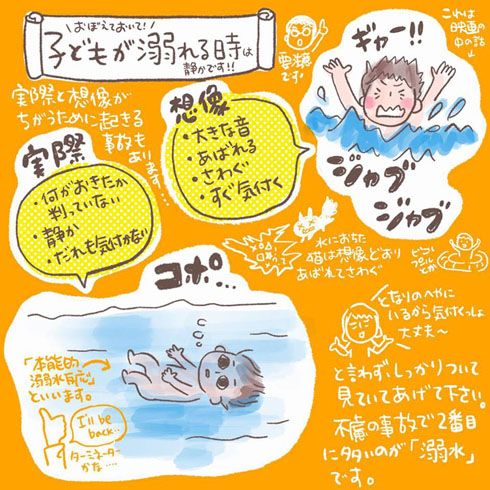 おぼえておいて!
子どもが溺れる時は
静かです!!
要注意
です!
ギャー!!
これは
映画の
中の話
ジャブ
ジャブ
実際と想像が
ちがうために起きる
事故も
あります…
想像
・大きな音
・あばれる
・さわぐ
・すぐ気付く
実際
・何がおきたか
判っていない
・静か
・だれも気付かない
水におちた
猫は想像どおり
あばれてさわぐ
ビニール
プールとか
コポ…
「本能的
溺水反応」
といいます。
I'll be
back…
ターミネーター
かな…
となりのへやに
いるから気付くっしょ
大丈夫~
と言わず、しっかりついて
見ていてあげて下さい。
不慮の事故で2番目
に多いのが「溺水」
です。